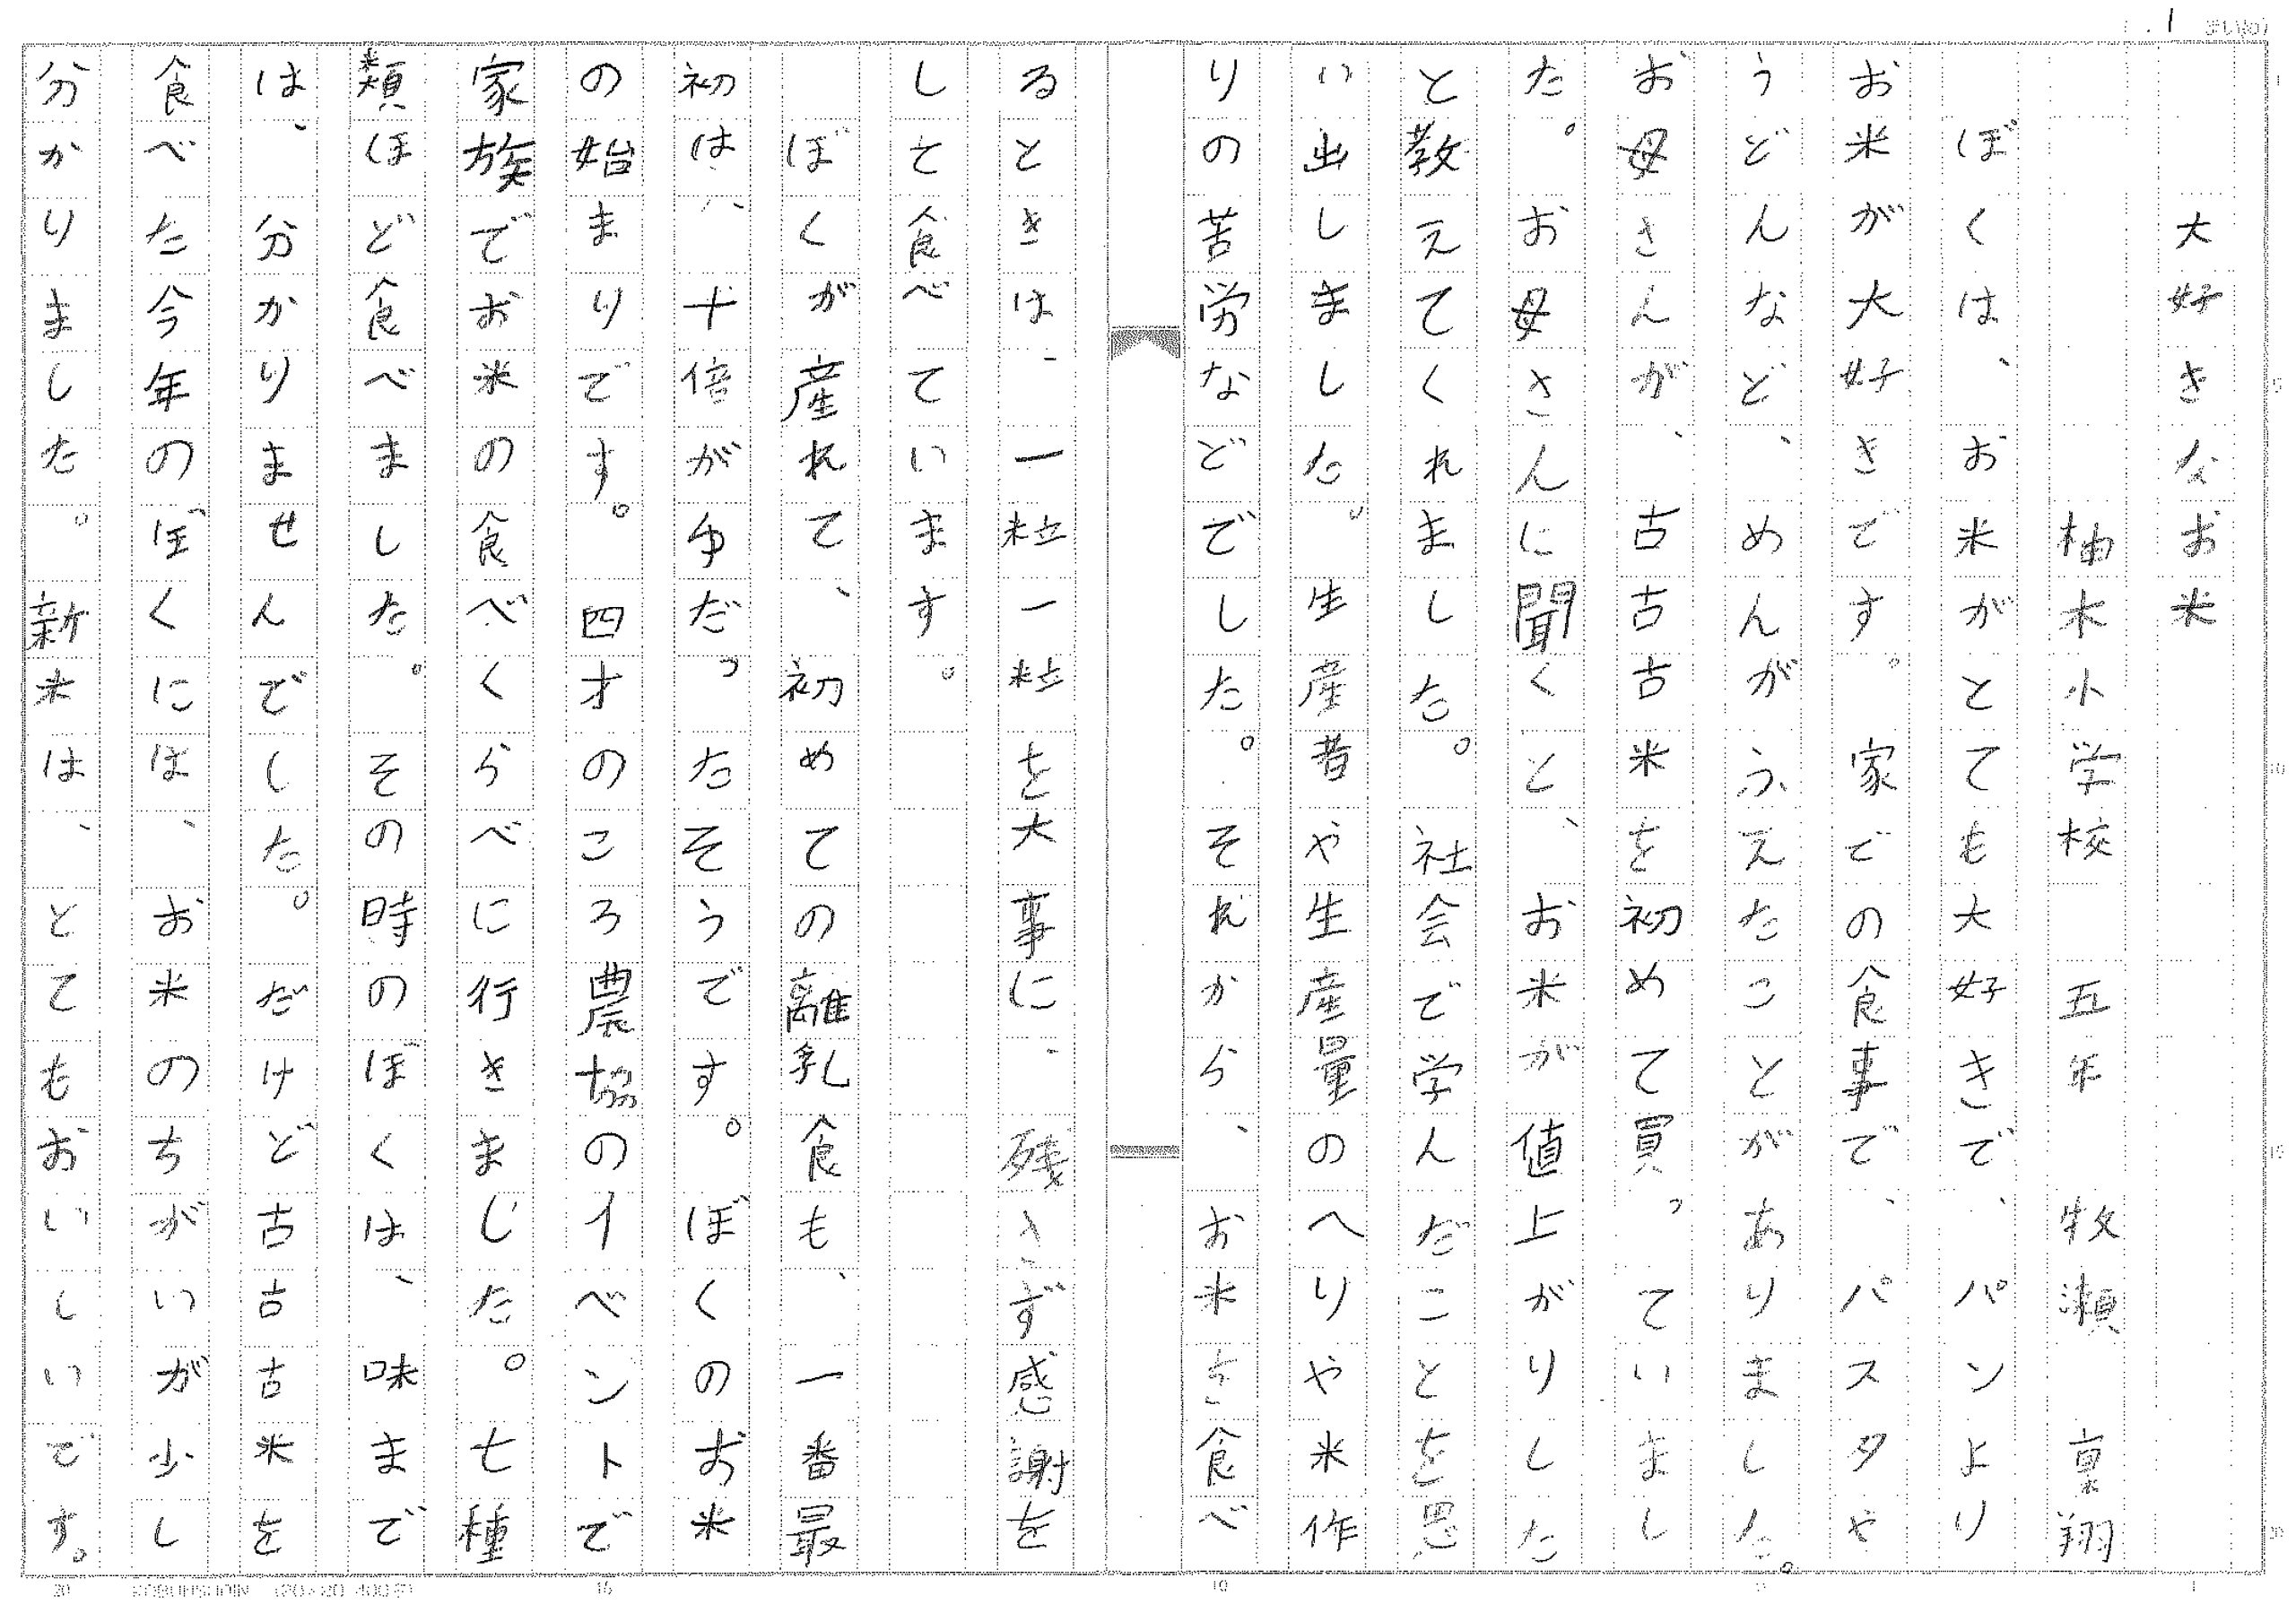 大好きなお米
柚木小学校　五年　牧瀬　稟翔
ぼくは、お米がとても大好きで、パンより
お米が大好きです。家での食事で、パスタや
うどんなど、めんがふえたことがありました。
お母さんが、古古古米を初めて買っていまし
た。お母さんに聞くと、お米が値上がりした
と教えてくれました。社会で学んだことを思
い出しました。生産者や生産量のへりや米作
りの苦労などでした。それから、お米を食べ
るときは、一粒一粒を大事に、残さず感謝を
して食べています。
ぼくが産れて、初めての離乳食も、一番最
初は、十倍がゆだったそうです。ぼくのお米
の始まりです。四才のころ農協のイベントで
家族でお米の食べくらべに行きました。七種
類ほど食べました。その時のぼくは、味まで
は、分かりませんでした。だけど古古古米を
食べた今年のぼくには、お米のちがいが少し
分かりました。新米は、とてもおいしいです。
1
1
5
10
15
20
20
15
10
5
1
KOBUNSHOIN (20×20 400字)